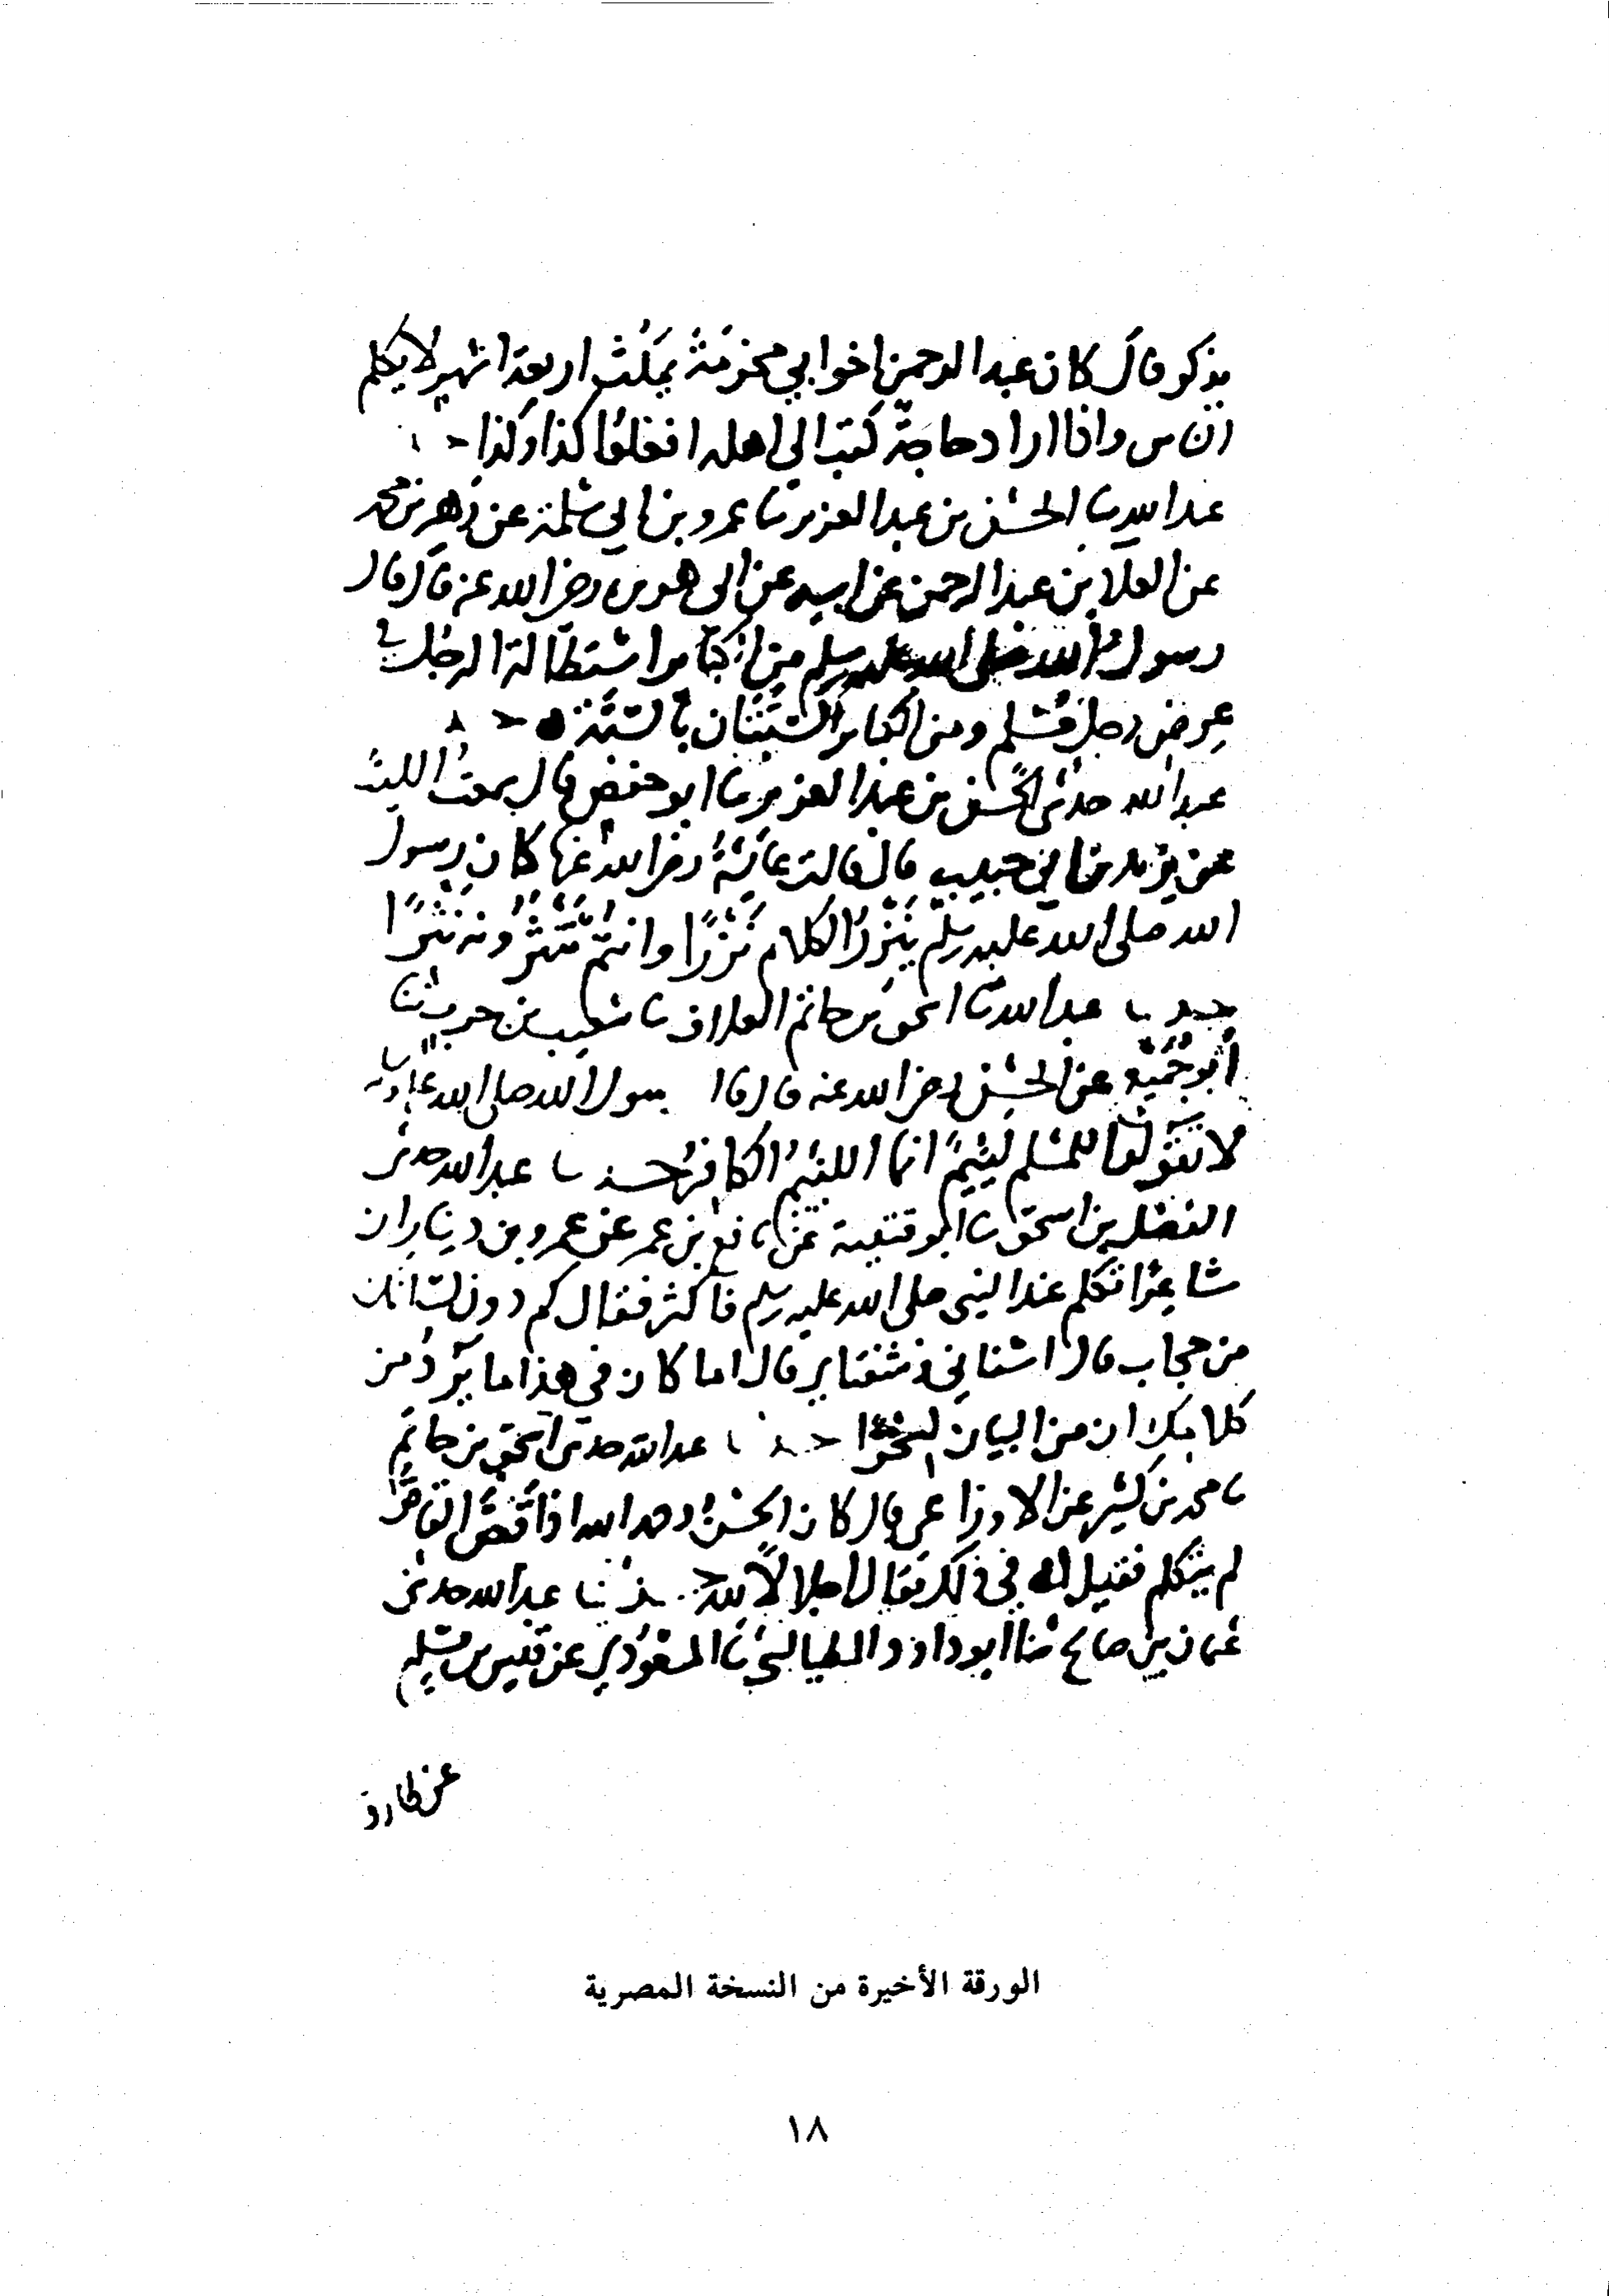 يذكر قال كان عبد الرحمن اخو ابي مخرمة يمكث اربعة اشهر لا يكلم
الناس واذا اراد حاجة كتب الى اهله افعلوا كذا وكذا
عبد الله ثنا الحسن بن عبد العزيز ثنا عمرو بن ابي سلمة عن زهير بن محمد
عن العلا بن عبد الرحمن عن ابيه عن ابي هريرة رضي الله عنه قال قال
رسول الله صلى الله عليه وسلم من الكبائر استطالة الرجل في
عرض رجل مسلم ومن الكبائر السبتان بالسبة
عبد الله حدثني الحسن بن عبد العزيز ثنا ابو حفص قال سمعت الليث
عن يزيد بن ابي حبيب قال قالت عائشة رضي الله عنها كان رسول
الله صلى الله عليه وسلم ينزر الكلام نزرا وانتم تنثرونه نثرا
عبد الله ثنا اسحق بن حاتم العلاف ثنا شعيب بن حرب ثنا
ابو جميع عن الحسن رضي الله عنه قال قال رسول الله صلى الله عليه وسلم
لا تقولوا للمسلم لئيم انما اللئيم الكافر حدثنا عبد الله حدثني
الفضل بن اسحق ثنا ابو قتيبة عن نافع بن عمر عن عمرو بن دينار ان
شاعرا تكلم عند النبي صلى الله عليه وسلم فاكثر فقال كم دون لسانك
من حجاب قال اسناني وشفتاي قال اما كان في هذا ما يرد من
كلامك ان من البيان لسحرا حدثنا عبد الله حدثني اسحق بن حاتم
ثنا محمد بن كثير عن الاوزاعي قال كان الحسن رحمه الله اذا قص القاص
لم يتكلم فقيل له في ذلك فقال اجلالا لله حدثنا عبد الله حدثني
عثمان بن صالح ثنا ابو داود الطيالسي ثنا المسعودي عن قيس بن مسلم
عن طارق
الورقة الأخيرة من النسخة المصرية
١٨